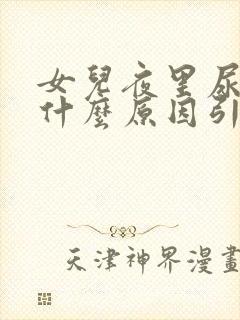 女兒夜里尿
什麼原因引
天津神界漫畫